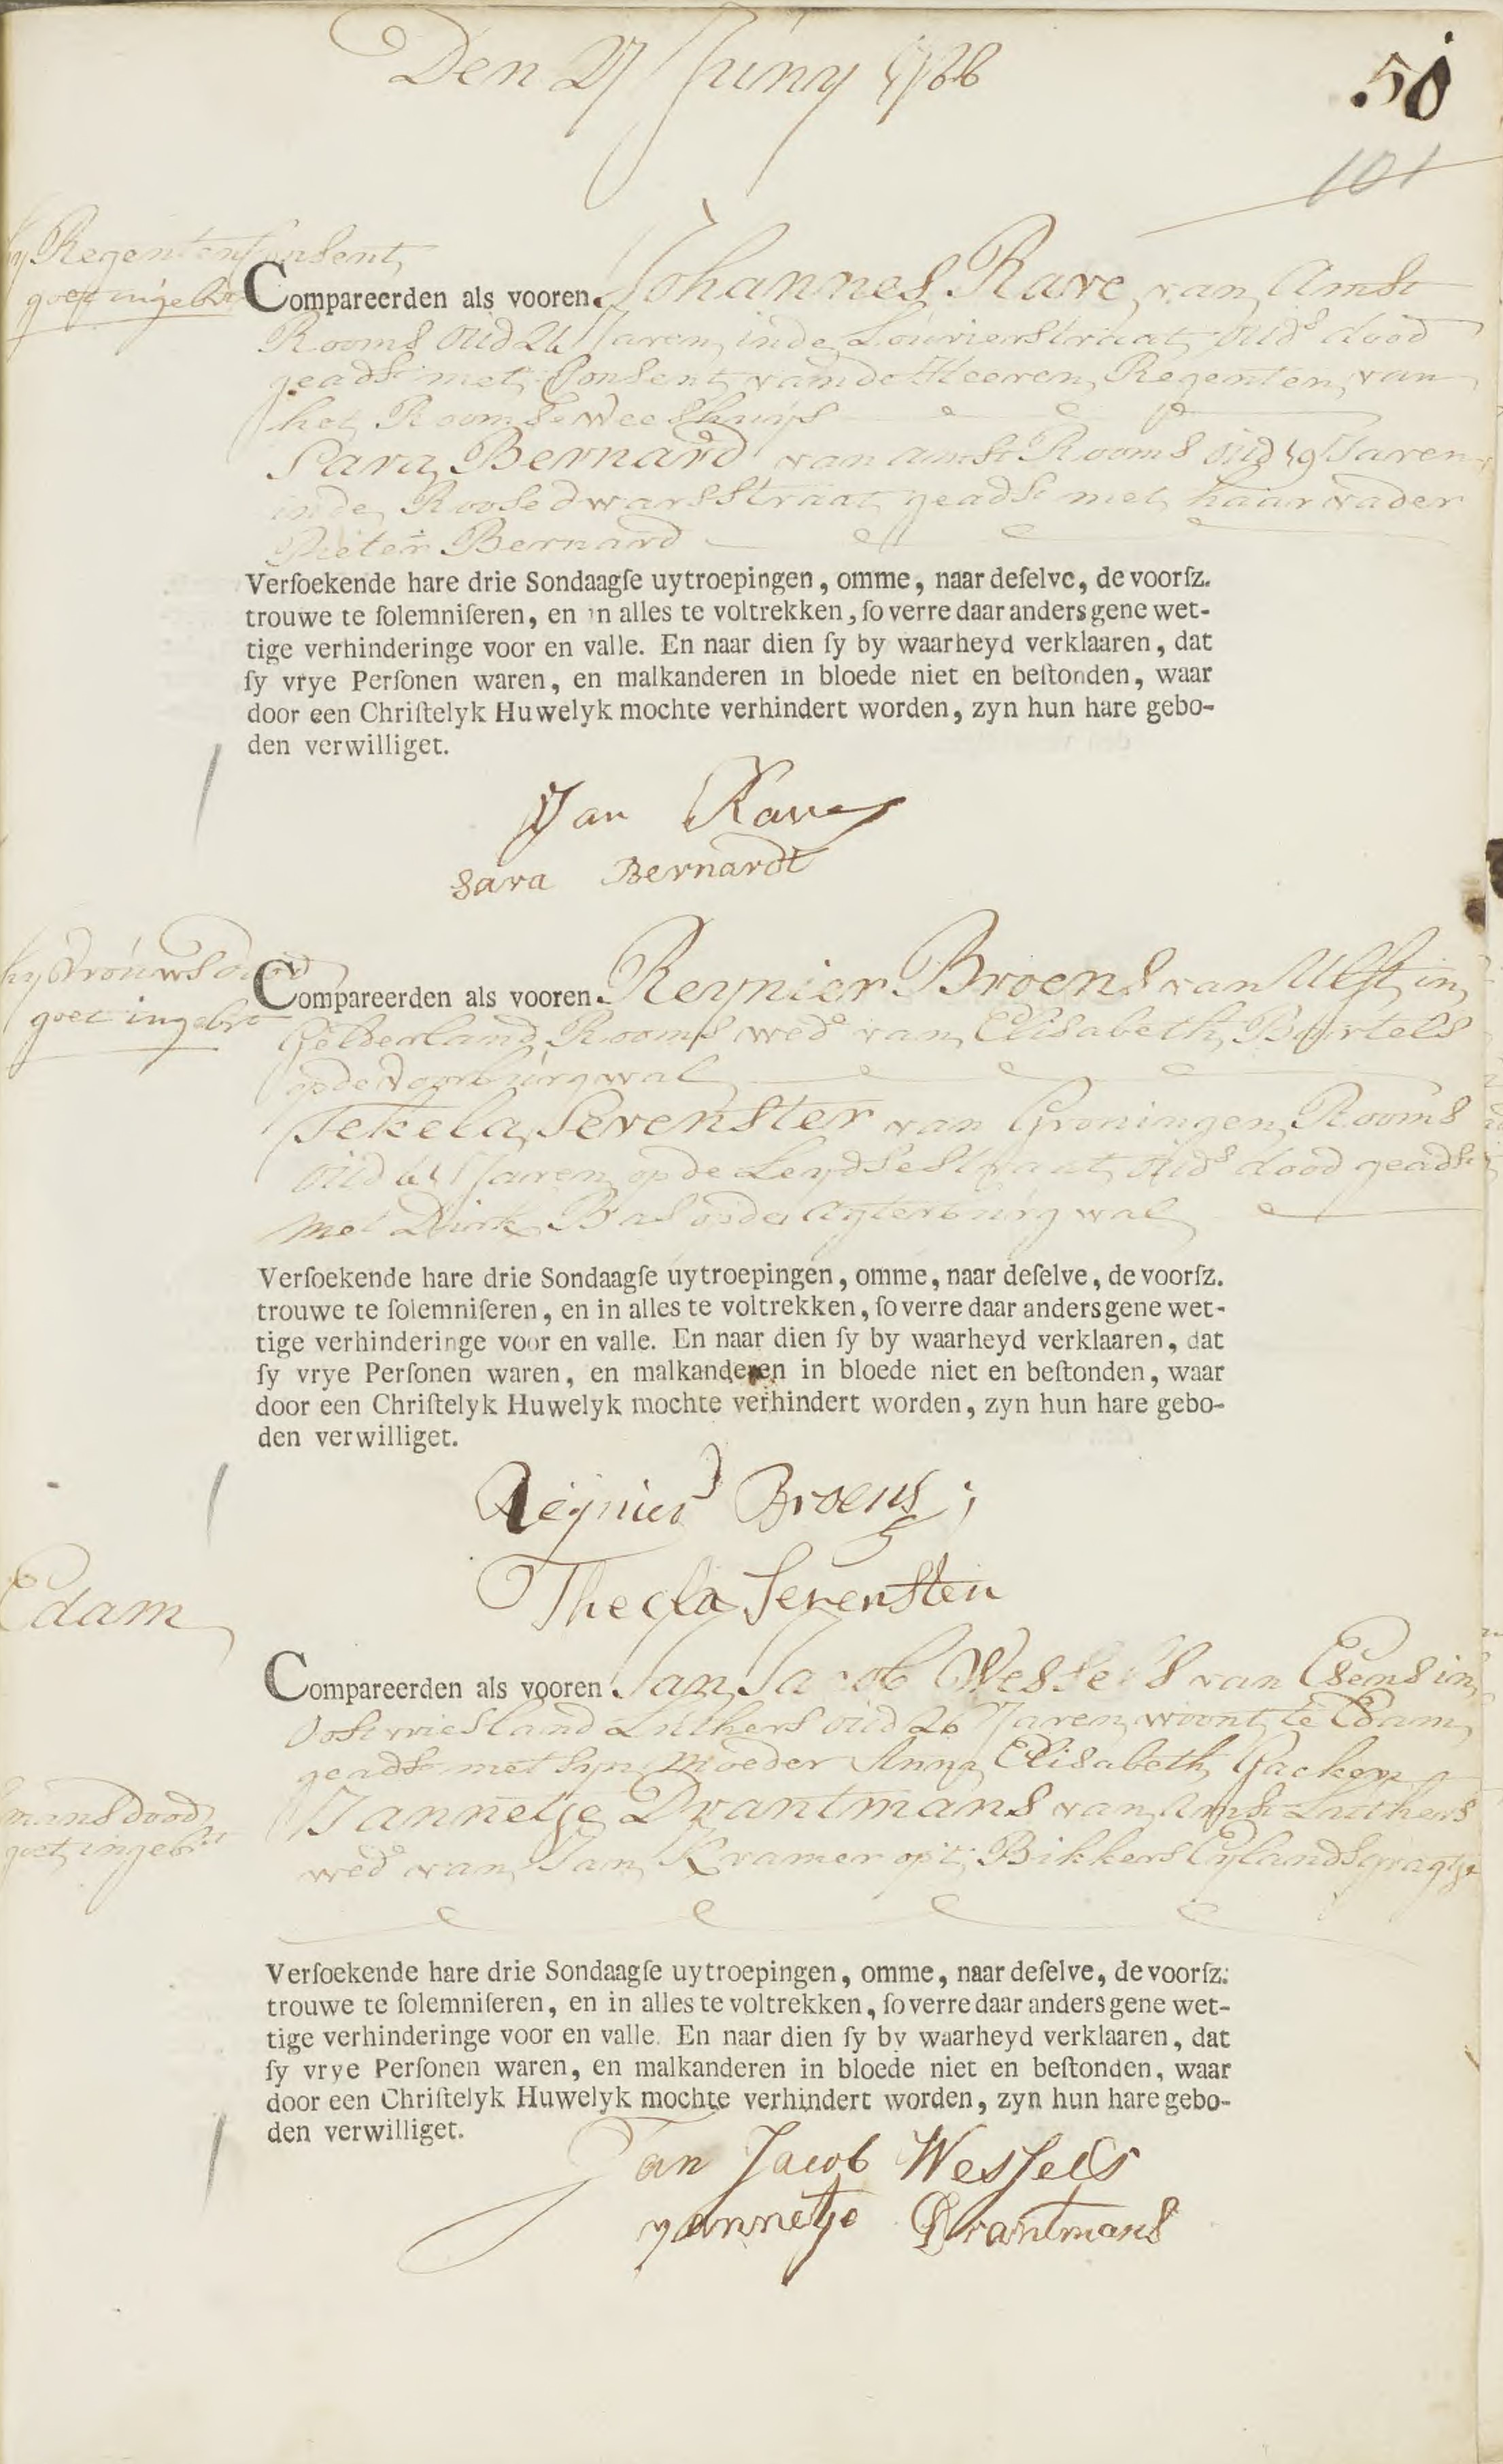 Den 27 Juny 1766
50
101
hy Regenten Consent
goet ingebrt
Compareerden als vooren. Johannes Rave van Amst
Rooms oud 24 Jaren inde Lourierstraat oud.s dood
geadst met Consent van de Heeren Regenten van
het Roomse Weeshuys
Sara Bernard van Amst Rooms oud 19 Jaren
inde Roosedwarsstraat geadst met haar vader
Pieter Bernard
Verſoekende hare drie Sondaagſe uytroepingen, omme, naar deſelve, de voorſz.
trouwe te ſolemniſeren, en in alles te voltrekken, ſo verre daar anders gene wet-
tige verhinderinge voor en valle. En naar dien ſy by waarheyd verklaaren, dat
ſy vrye Perſonen waren, en malkanderen in bloede niet en beſtonden, waar
door een Chriſtelyk Huwelyk mochte verhindert worden, zyn hun hare gebo-
den verwilliget.
Jan Rave
Sara Bernardt
hy Vrouws dood
goet ingebrt
Compareerden als vooren. Reynier Broens van Ulft in
Gelderland Rooms wed.r van Elisabeth Bartels
op de Voorburgwal
Tekela Sevenster van Groningen Rooms
oud Jaren op de Leydsestraat oud.s dood geadst
met Dirk Bas op de Agterburgwal
Verſoekende hare drie Sondaagſe uytroepingen, omme, naar deſelve, de voorſz.
trouwe te ſolemniſeren, en in alles te voltrekken, ſo verre daar anders gene wet-
tige verhinderinge voor en valle. En naar dien ſy by waarheyd verklaaren, dat
ſy vrye Perſonen waren, en malkanderen in bloede niet en beſtonden, waar
door een Chriſtelyk Huwelyk mochte verhindert worden, zyn hun hare gebo-
den verwilliget.
Reynier Broens
Thecla Sevensten
Edam
Compareerden als vooren. Jan Jacob Wessels van Esens in
Oostvriesland Luthers oud 26 Jaren woont te Edam
geadst met syn Moeder Anna Elisabeth Gacken
mans dood
goet ingebrt
Jannetje Drantmans van Amst Luthers
wed.e van Jan Kramer op 't Bikkers Eylandsgragtje
Verſoekende hare drie Sondaagſe uytroepingen, omme, naar deſelve, de voorſz.
trouwe te ſolemniſeren, en in alles te voltrekken, ſo verre daar anders gene wet-
tige verhinderinge voor en valle. En naar dien ſy by waarheyd verklaaren, dat
ſy vrye Perſonen waren, en malkanderen in bloede niet en beſtonden, waar
door een Chriſtelyk Huwelyk mochte verhindert worden, zyn hun hare gebo-
den verwilliget.
Jan Jacob Wessels
yannetje Drantmans